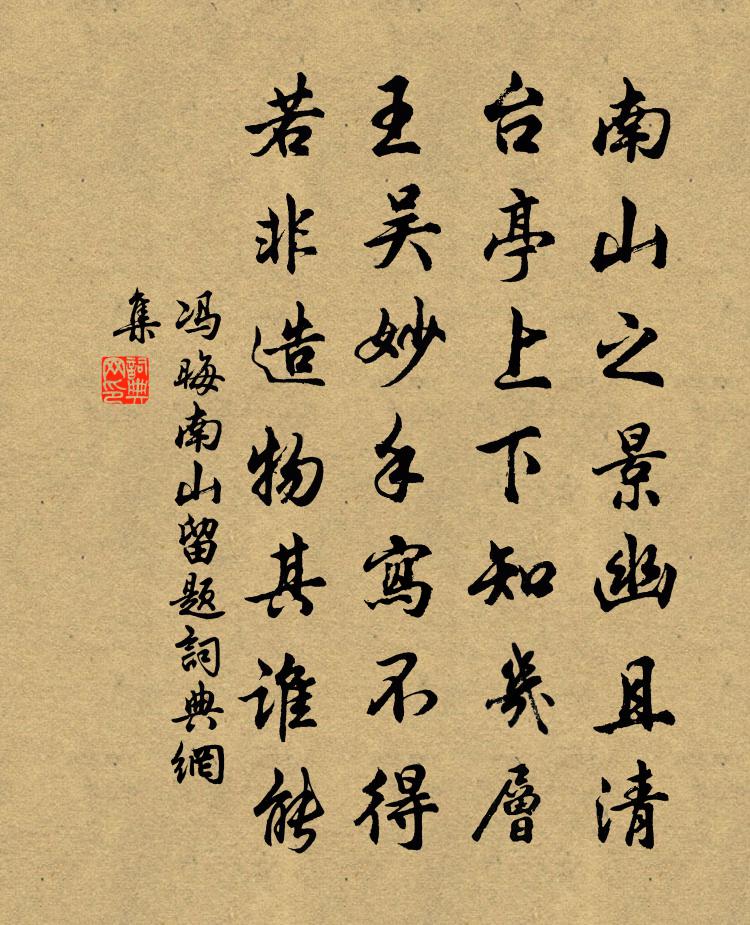 南山之景幽且清
台亭上下知幾層
王吴妙手寫不得
若非造物其誰能
冯晦南山留题詞典網
集
詞典网印